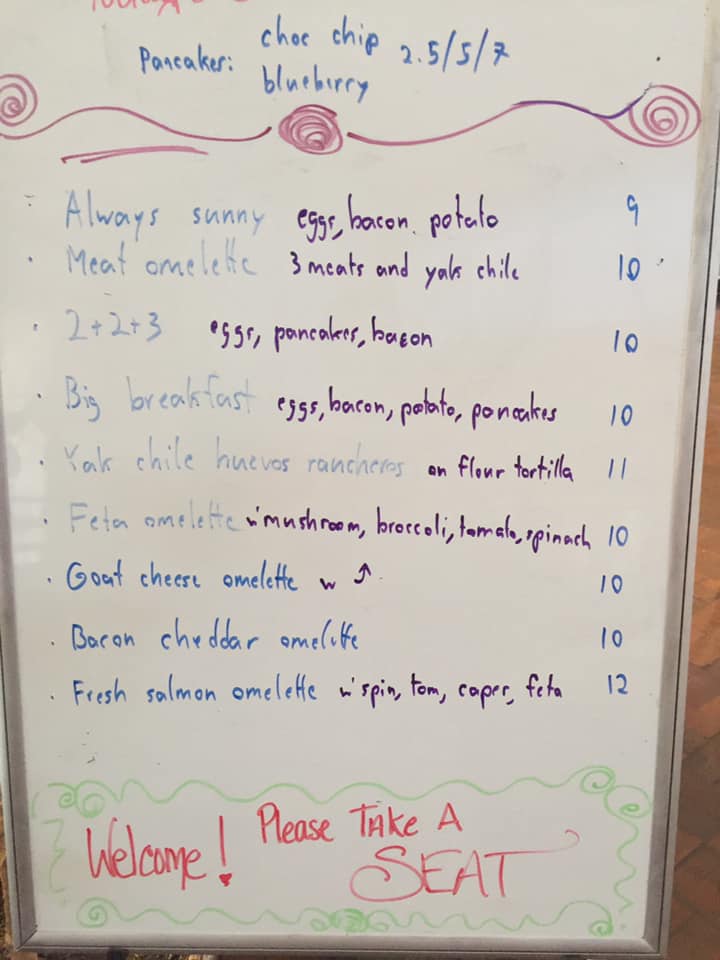 Pancakes: choc chip 2.5/5/7
blueberry
Always sunny eggs, bacon, potato 9
Meat omelette 3 meats and yak chile 10
2+2+3 eggs, pancakes, bacon 10
Big breakfast eggs, bacon, potato, pancakes 10
Yak chile huevos rancheros on flour tortilla 11
Feta omelette w/ mushroom, broccoli, tomato, spinach 10
Goat cheese omelette w ↑ 10
Bacon cheddar omelette 10
Fresh salmon omelette w/ spin, tom, caper, feta 12
Welcome! Please TAKE A
SEAT